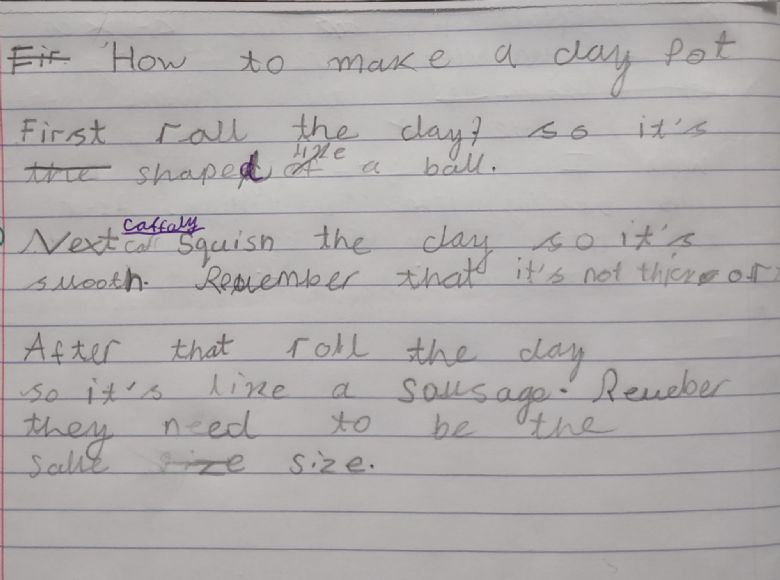 Fir How to make a clay pot
First roll the clay so it's
the shaped of like a ball.
Next caffaly squish the clay so it's
smooth. Remember that it's not thick or
After that roll the clay
so it's like a sausage. Remeber
they need to be the
same size size.